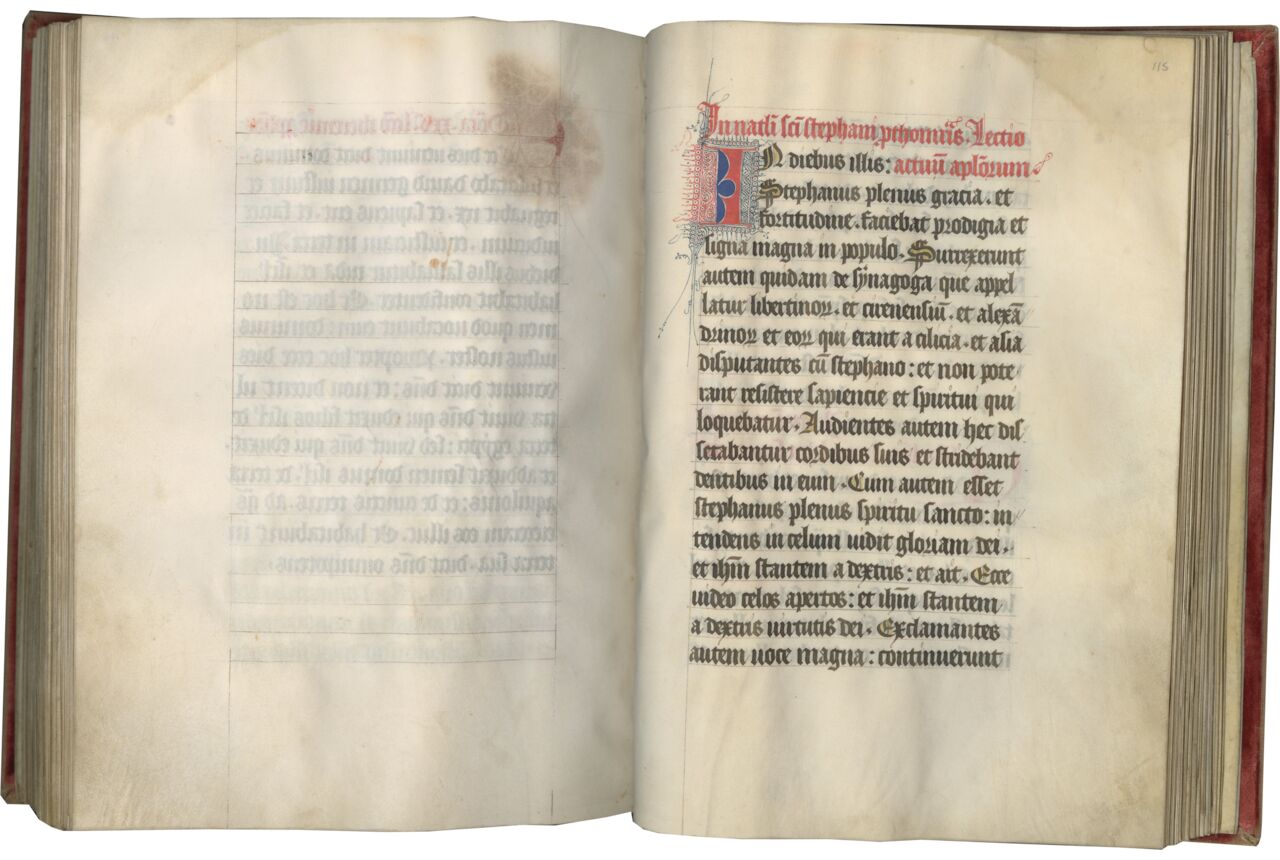 115
In natli sci stephani ꝓthomr̄is. Lectio
N diebus illis: actuū aplōrum
Stephanus plenus gracia. et
fortitudine. faciebat prodigia et
signa magna in populo. Surrexerunt
autem quidam de synagoga que appel
latur libertinoꝝ. et cirenensiū. et alexā
drinoꝝ et eoꝝ qui erant a cilicia. et asia
disputantes cū stephano: et non pote
rant resistere sapiencie et spiritui qui
loquebatur. Audientes autem hec dis
secabantur cordibus suis et stridebant
dentibus in eum. Cum autem esset
stephanus plenus spiritu sancto: in
tendens in celum vidit gloriam dei.
et ihm̄ stantem a dextris: et ait. Ecce
video celos apertos: et ihm̄ stantem
a dextris virtutis dei. Exclamantes
autem voce magna: continuerunt